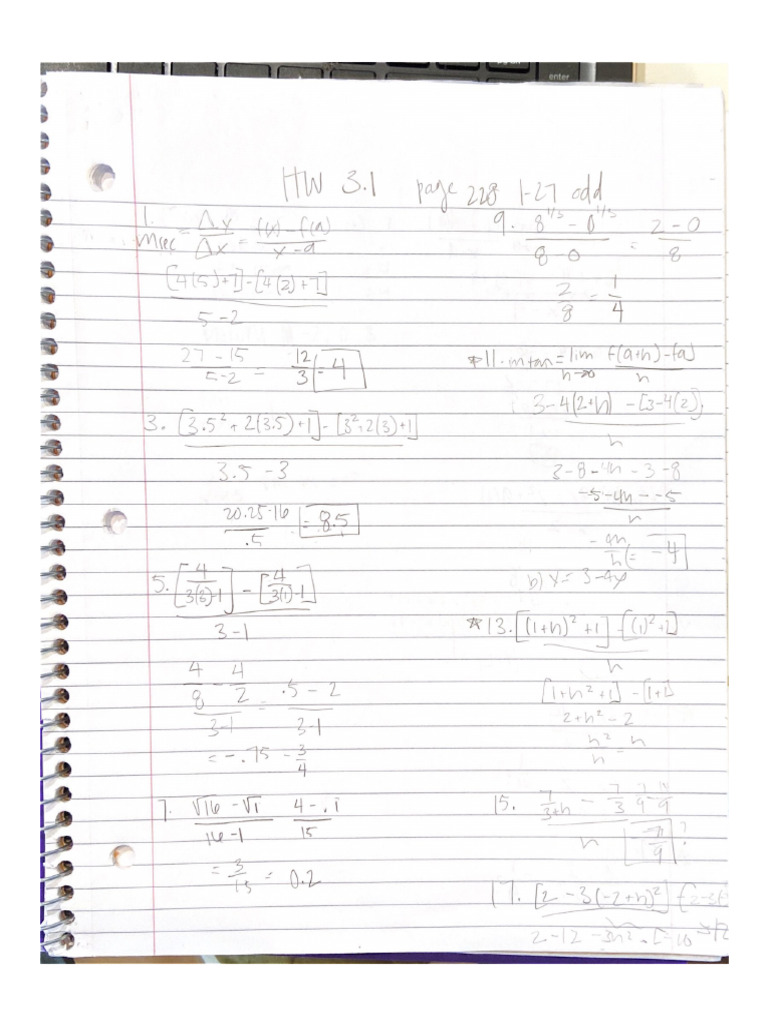 enter
HW 3.1 page 228 1-27 odd
1.
msec = Δy/Δx = f(x) - f(a) / x - a
[4(5)+7]-[4(2)+7]
5-2
27-15 / 5-2 = 12/3 = 4
3. [3.5² + 2(3.5)+1]-[3²+2(3)+1]
3.5 - 3
20.25-16 / .5 = 8.5
5. [4 / 3(3)-1] - [4 / 3(1)-1]
3-1
4/8 - 4/2 / 3-1 = .5 - 2 / 3-1
= -.75 - 3/4
7. √16 - √1 / 16-1   4 - .1 / 15
= 3/15 = 0.2
9. 8^1/3 - 0^1/3 / 8-0 = 2-0 / 8
2/8 = 1/4
*11. mtan = lim h→0 f(a+h)-f(a) / h
3-4(2+h) - [3-4(2)]
h
3-8-4h-3-8
-5-4h--5
h
-4h / h = -4
b) y = 3-4x
*13. [(1+h)²+1] - [(1)²+1]
h
[1+h²+1] - [1+1]
2+h²-2
h²/h = h
15. 7/3+h - 7/3
h
-7/9 ?
17. [2-3(-2+h)²]
2-12-3h²-[-10